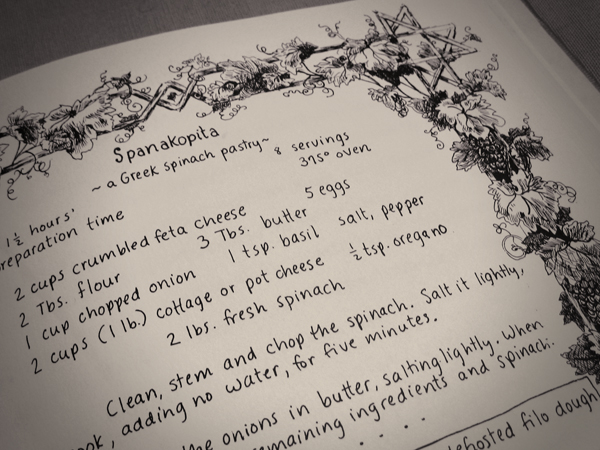 Spanakopita
~ a Greek Spinach pastry~
8 servings
375° oven
1½ hours'
preparation time
2 cups crumbled feta cheese
5 eggs
2 Tbs. flour
3 Tbs. butter
1 cup chopped onion
1 tsp. basil
salt, pepper
2 cups (1 lb.) cottage or pot cheese
½ tsp. oregano
2 lbs. fresh spinach
Clean, stem and chop the spinach. Salt it lightly,
ook, adding no water, for five minutes.
the onions in butter, salting lightly. When
maining ingredients and spinach.
defrosted filo dough